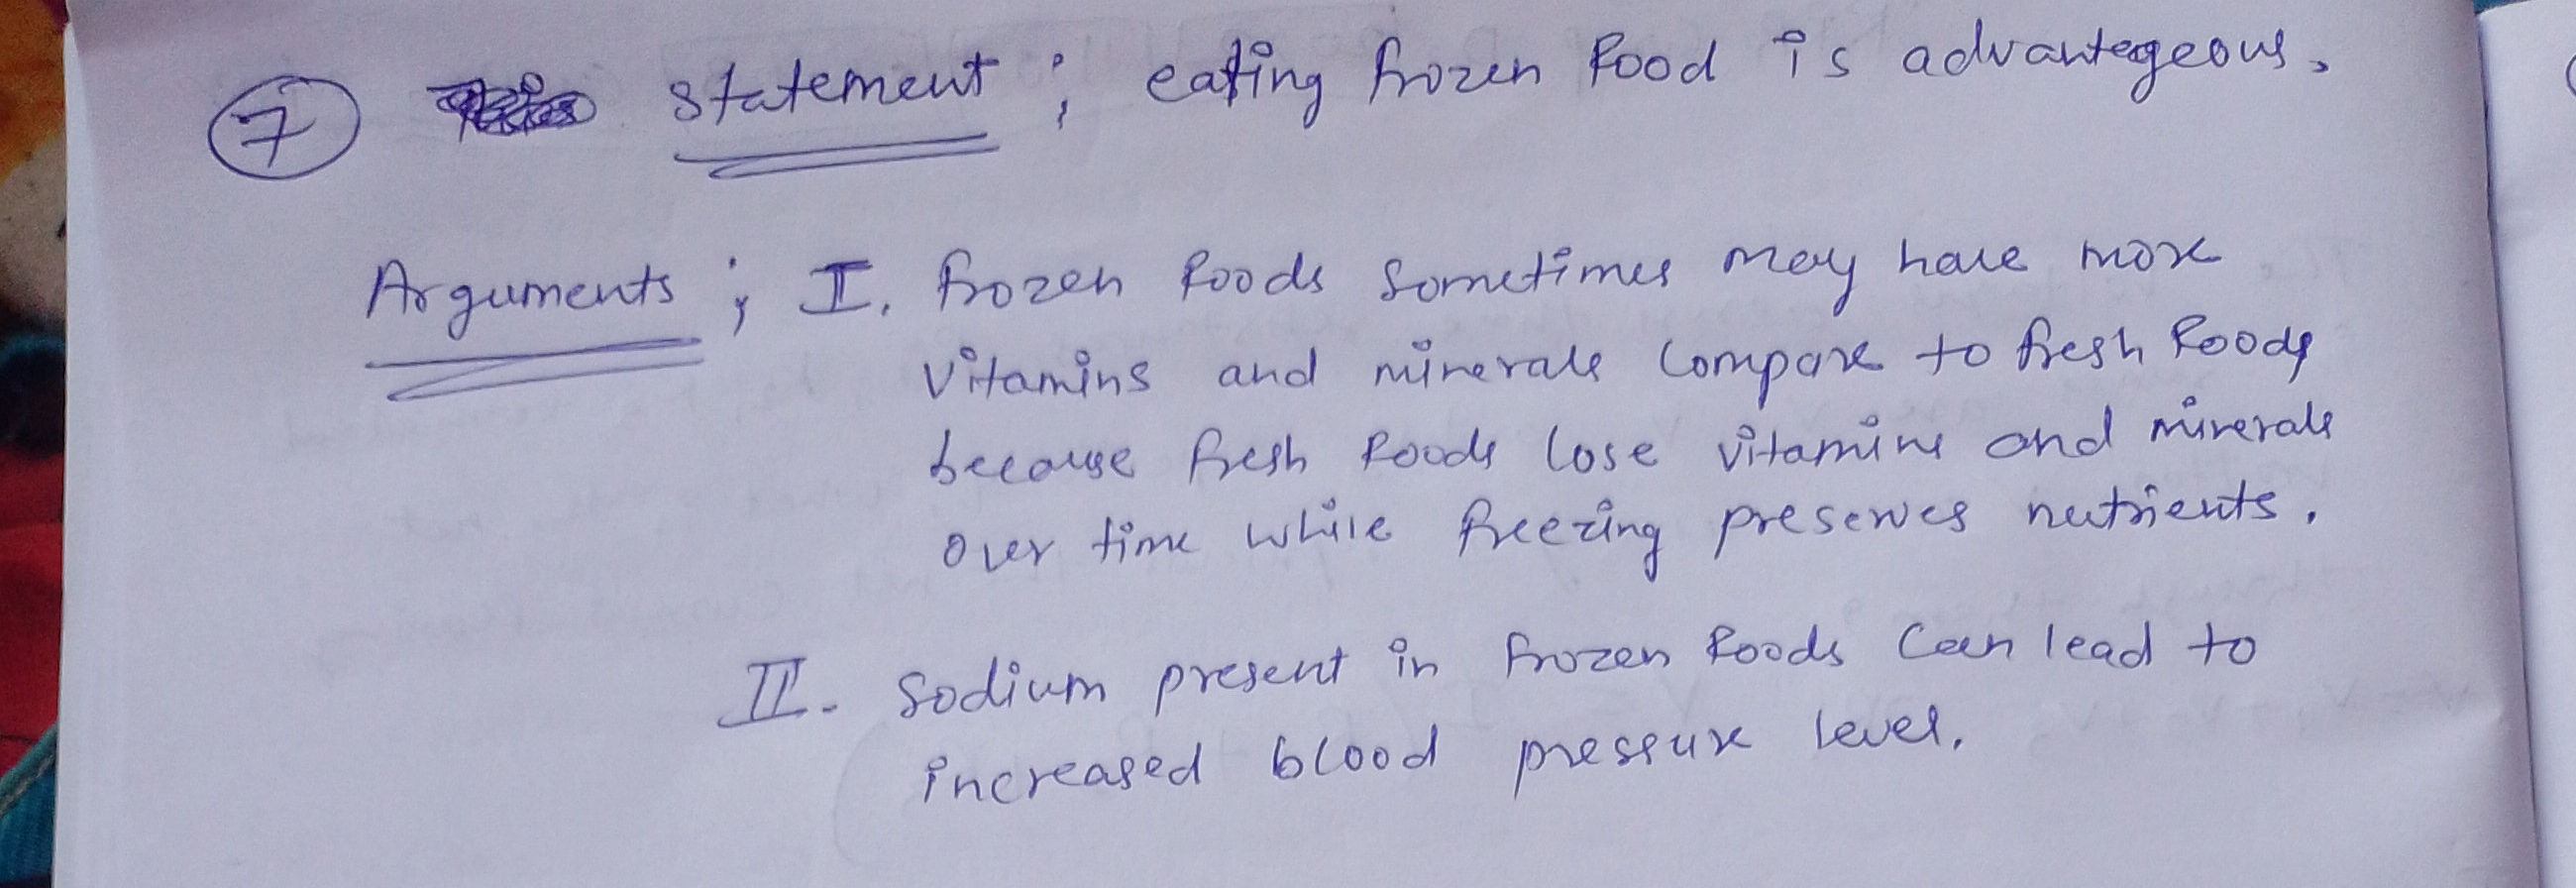 7 statement : eating frozen food is advantegeous.
Arguments : I. frozen foods sometimes may have more
vitamins and minerals compare to fresh foods
because fresh foods lose vitamins and minerals
over time while freezing preserves nutrients.
II. sodium present in frozen foods can lead to
increased blood pressure level.